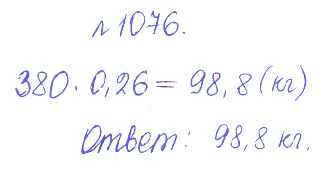 №1076.
380·0,26=98,8(кг)
Ответ: 98,8 кг.